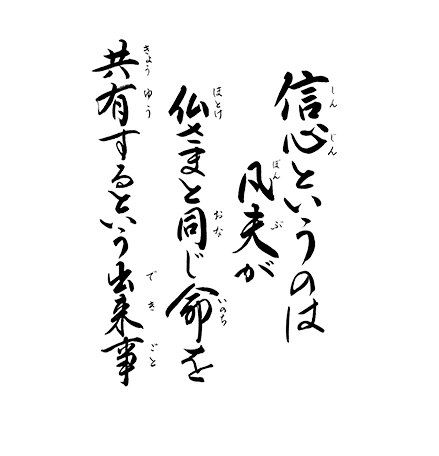 信心というのは
凡夫が
仏さまと同じ命を
共有するという出来事
しん じん
ぼん ぶ
ほとけ おな いのち
きょう ゆう で き ごと